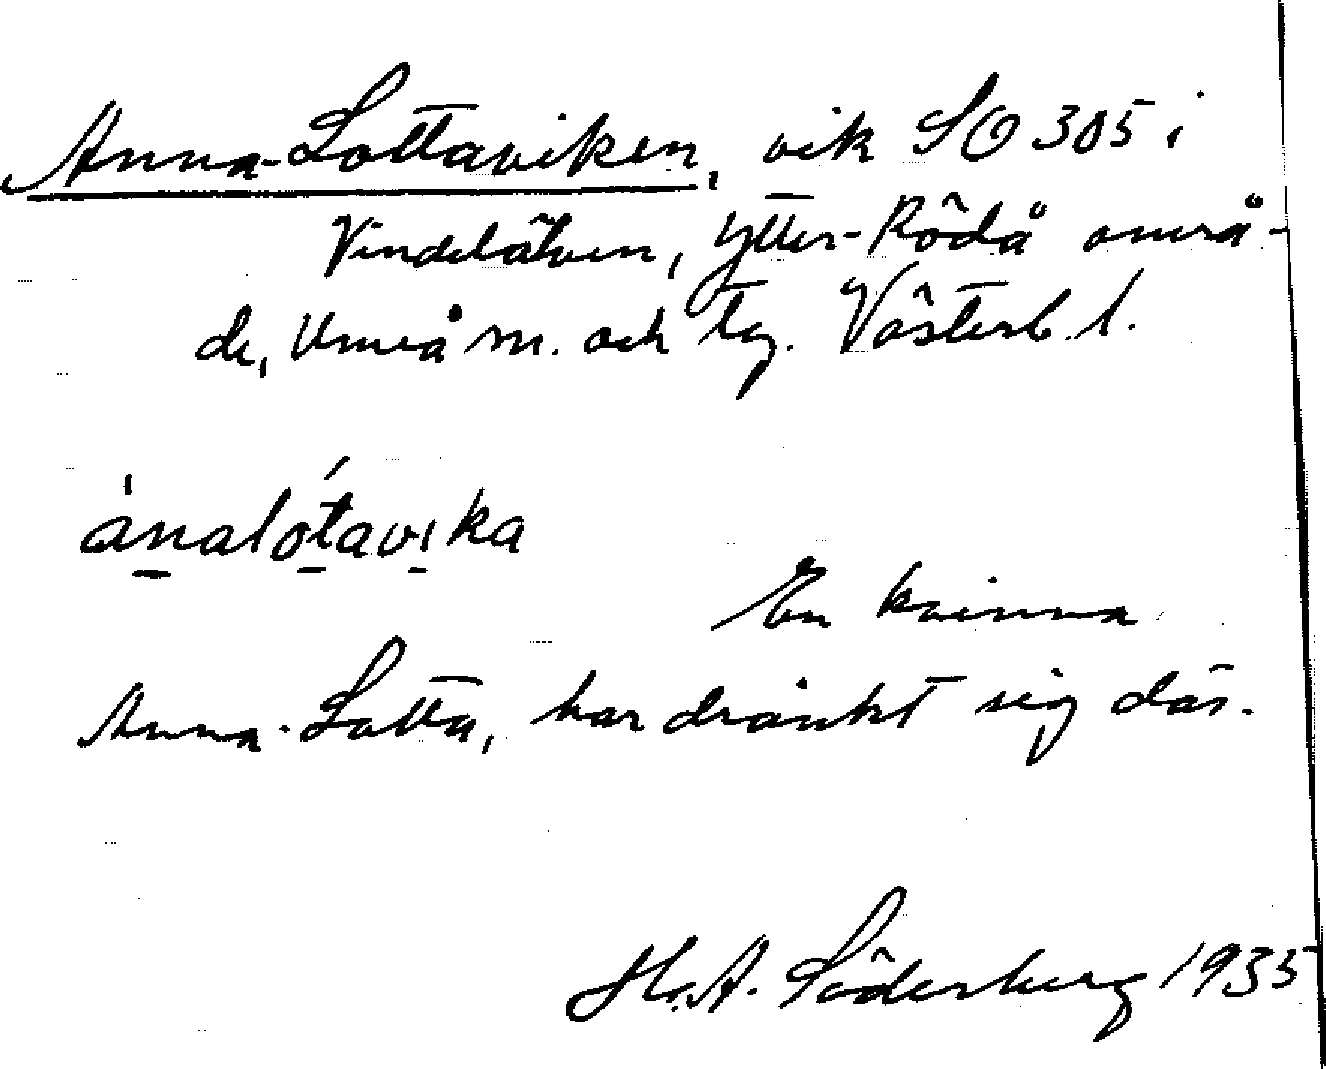 Anna-Lottaviken, vik SO 305 i
Vindelälven, Ytter-Rödå områ-
de, Umeå m. och tg. Västerb. l.
ánalótavika
En kvinna
Anna-Lotta, har dränkt sig där.
H. A. Söderberg 1935